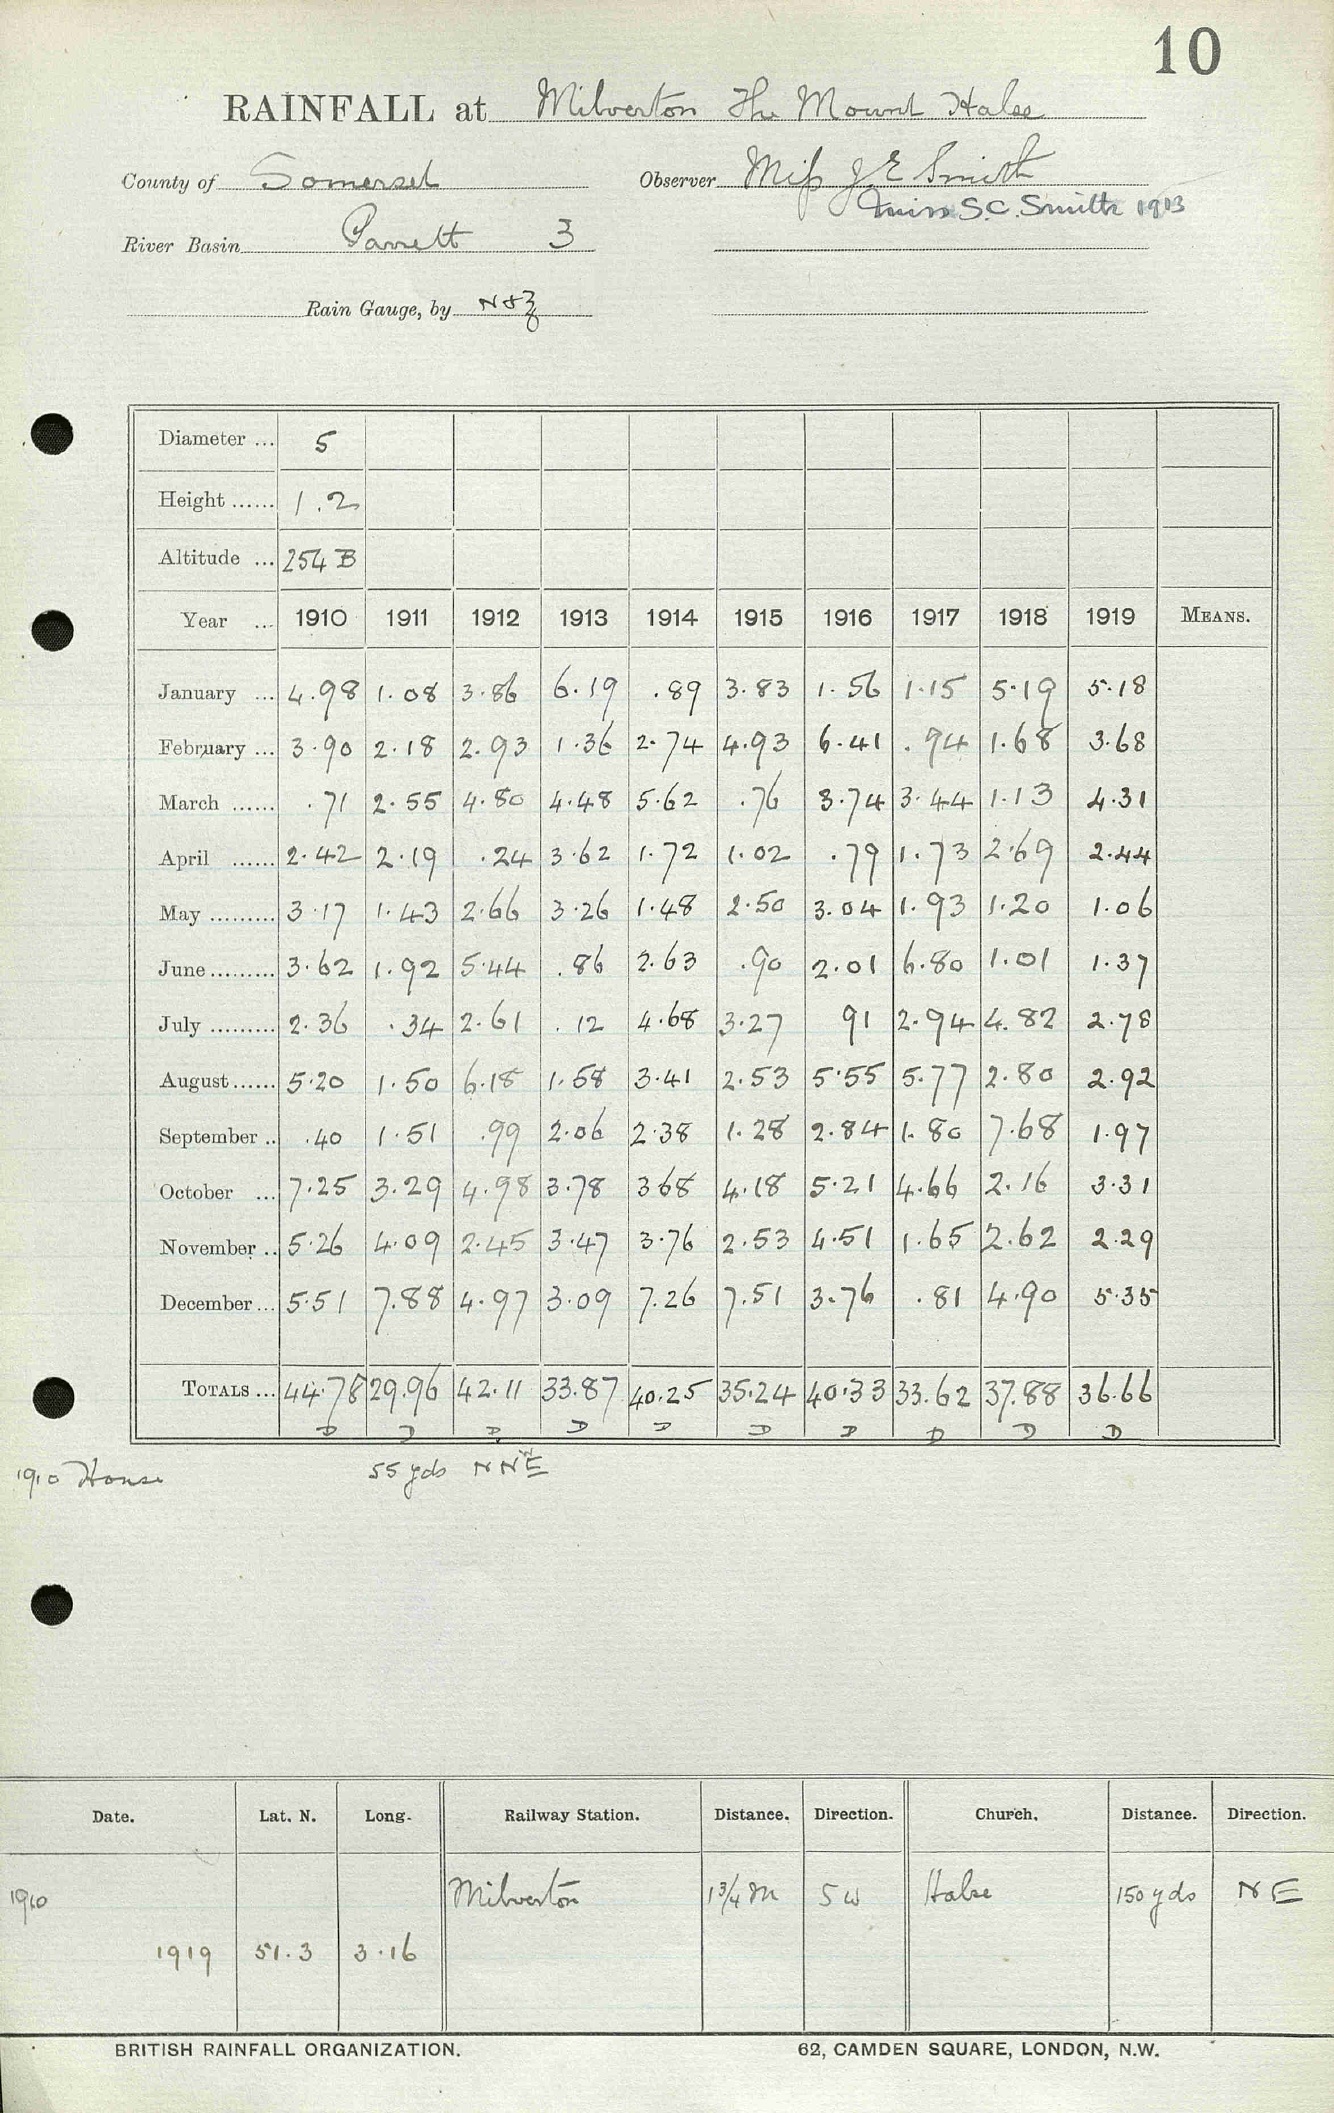 10
RAINFALL at Milverton The Mount Halse
County of Somerset Observer Miss J E Smith
Miss S.C. Smith 1913
River Basin Parrett 3
Rain Gauge, by N & Z
Diameter ... 5
Height ...... 1.2
Altitude ... 254 B
Year ... 1910 1911 1912 1913 1914 1915 1916 1917 1918 1919 MEANS.
January ... 4.98 1.08 3.86 6.19 .89 3.83 1.56 1.15 5.19 5.18
February ... 3.90 2.18 2.93 1.36 2.74 4.93 6.41 .94 1.68 3.68
March ...... .71 2.55 4.80 4.48 5.62 .76 3.74 3.44 1.13 4.31
April ...... 2.42 2.19 .24 3.62 1.72 1.02 .79 1.73 2.69 2.44
May ......... 3.17 1.43 2.66 3.26 1.48 2.50 3.04 1.93 1.20 1.06
June ......... 3.62 1.92 5.44 .86 2.63 .90 2.01 6.80 1.01 1.37
July ......... 2.36 .34 2.61 .12 4.68 3.27 91 2.94 4.82 2.78
August ...... 5.20 1.50 6.18 1.58 3.41 2.53 5.55 5.77 2.80 2.92
September .. .40 1.51 .99 2.06 2.38 1.28 2.84 1.80 7.68 1.97
October ... 7.25 3.29 4.98 3.78 3.68 4.18 5.21 4.66 2.16 3.31
November .. 5.26 4.09 2.45 3.47 3.76 2.53 4.51 1.65 2.62 2.29
December ... 5.51 7.88 4.97 3.09 7.26 7.51 3.76 .81 4.90 5.35
TOTALS ... 44.78 29.96 42.11 33.87 40.25 35.24 40.33 33.62 37.88 36.66
D D D D D D D D D D
1910 House 55 yds NNE
Date. Lat. N. Long. Railway Station. Distance. Direction. Church. Distance. Direction.
1910 Milverton 1¾ m SW Halse 150 yds NE
1919 51.3 3.16
BRITISH RAINFALL ORGANIZATION. 62, CAMDEN SQUARE, LONDON, N.W.